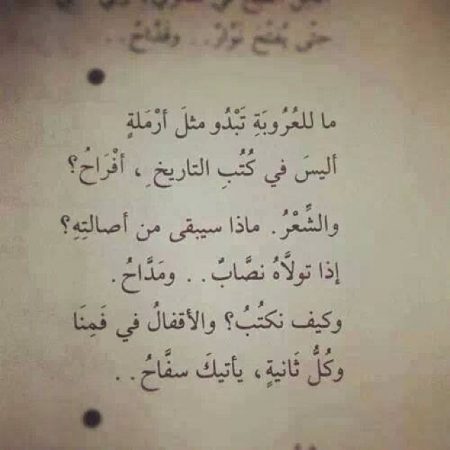 حتّى يُفتّحَ نوّارٌ.. وقدّاحُ..
ما للعُرُوبَةِ تَبْدُو مثلَ أرْمَلةٍ
أليسَ في كُتُبِ التاريخِ، أفْرَاحُ؟
والشِّعْرُ. ماذا سيبقى من أصالتِهِ؟
إذا تولاَّهُ نصَّابٌ.. ومَدَّاحُ.
وكيف نكتُبُ؟ والأقفالُ في فَمِنَا
وكُلُّ ثَانيةٍ، يأتيكَ سفَّاحُ..